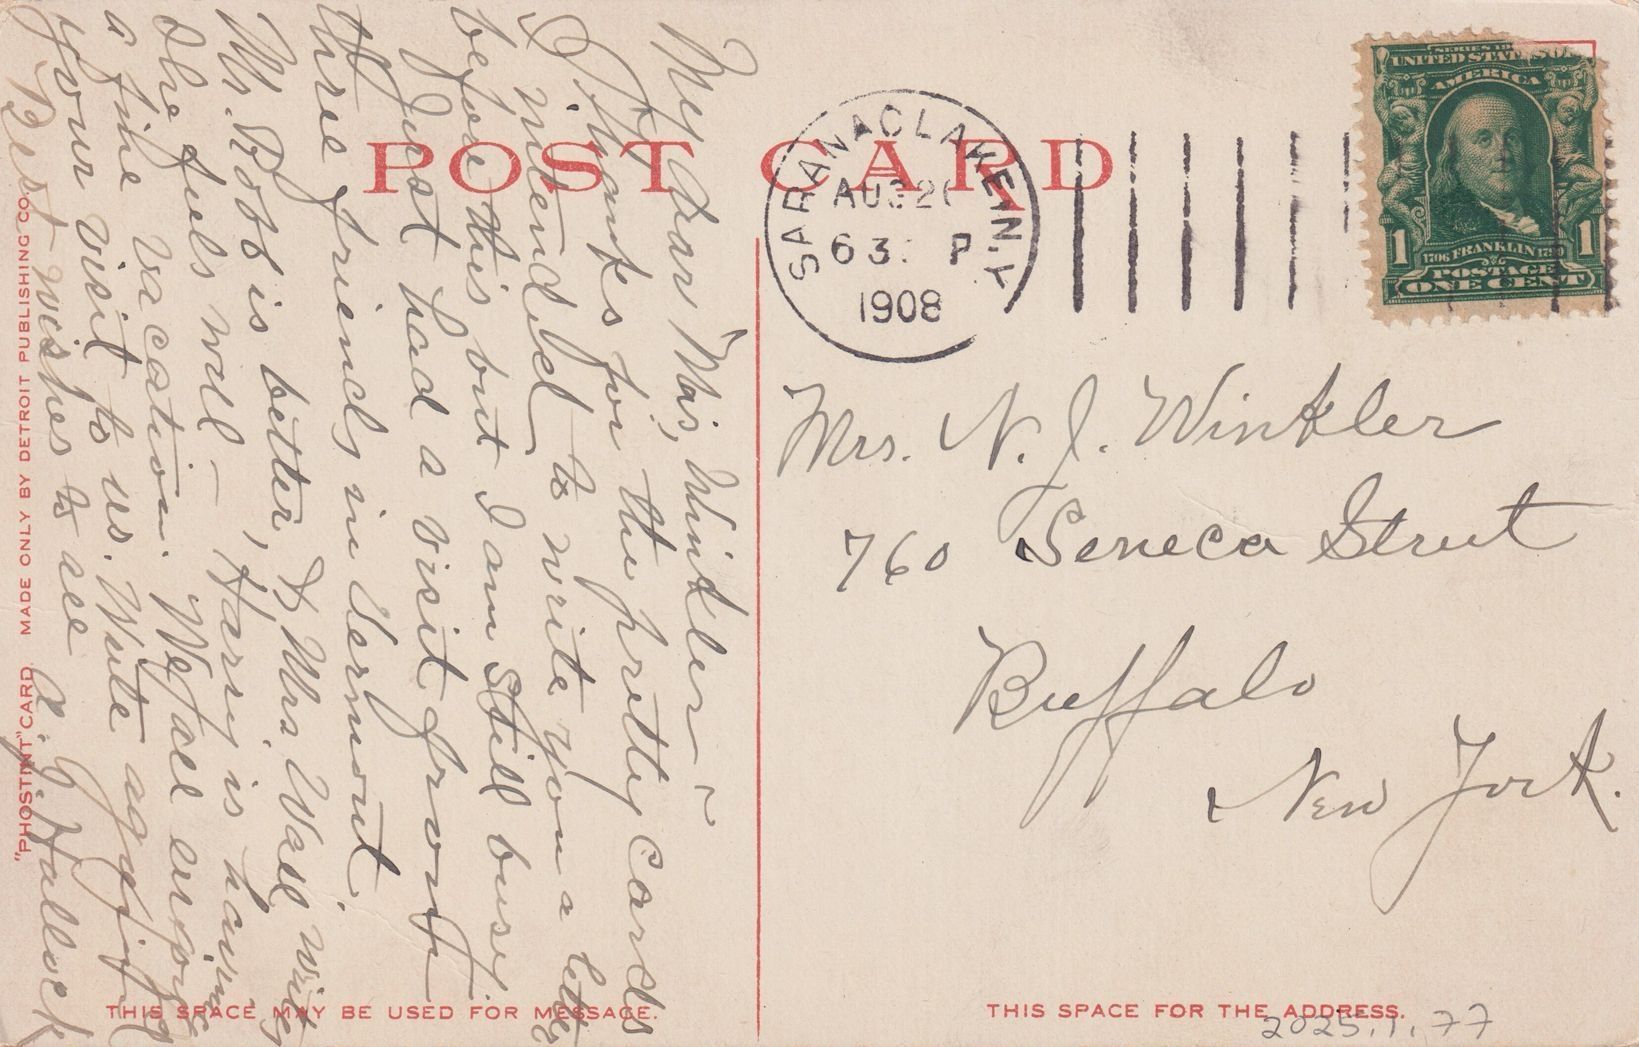 My dear Mrs. Winkler ~
Thanks for the pretty cards
I intended to write you a letter
before this but I am still busy.
Just had a visit from
three friends in Vermont.
Mr. Robb is better, & Mrs. Wall writes
she feels well - Harry is having
a fine vacation. We all enjoyed
your visit to us. Write again
Best wishes to all
A. G. Hallock
POST CARD
"PHOSTINT" CARD. MADE ONLY BY DETROIT PUBLISHING CO.
THIS SPACE MAY BE USED FOR MESSAGE.
SARANAC LAKE, N.Y.
AUG 2
6 3 P
1908
UNITED STATES
AMERICA
1 1706 FRANKLIN 1790 1
POSTAGE
ONE CENT
Mrs. N. J. Winkler
760 Seneca Street
Buffalo
New York.
THIS SPACE FOR THE ADDRESS.
2025.1.77